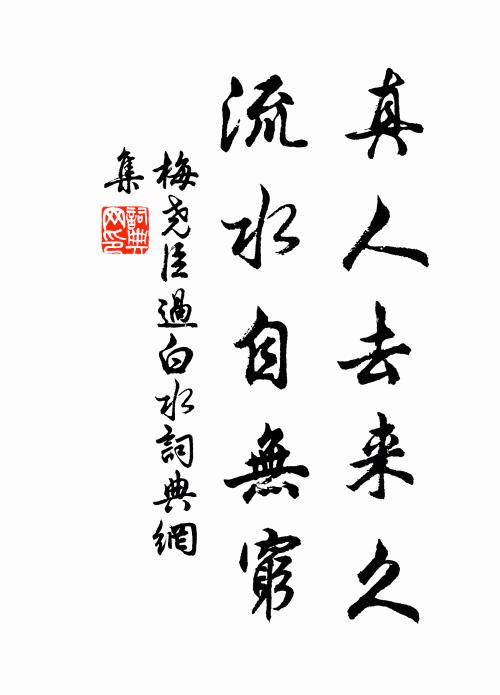 真人去来久
流水自無窮
梅尧臣過白水詞典網
集
詞典
网印